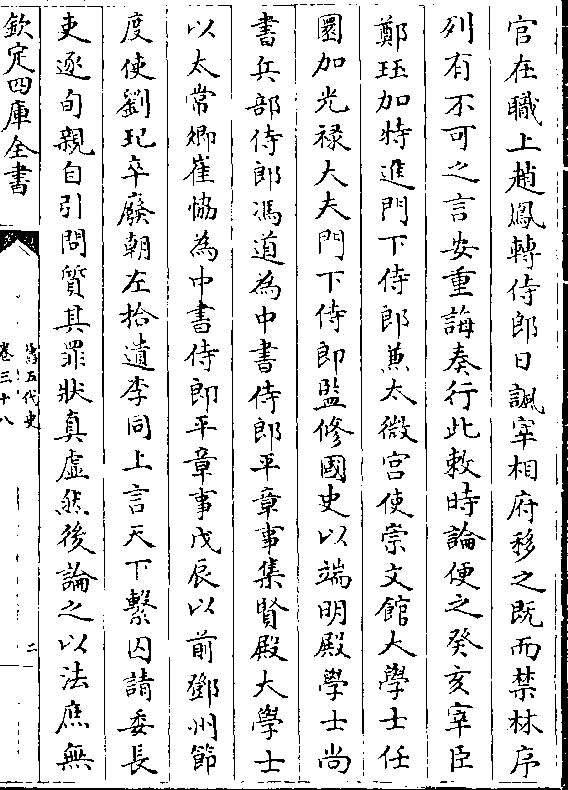 官在職上趙鳳轉侍郎日諷宰相府移之既而禁林序
列有不可之言安重誨奏行此敕時論便之癸亥宰臣
鄭珏加特進門下侍郎兼太微宫使崇文館大學士任
圜加光禄大夫門下侍郎監修國史以端明殿學士尚
書兵部侍郎馮道為中書侍郎平章事集賢殿大學士
以太常卿崔恊為中書侍郎平章事戊辰以前鄧州節
度使劉玘卒廢朝左拾遺李同上言天下繫囚請委長
吏逐旬親自引問質其罪狀真虛然後論之以法庶無
欽定四庫全書
舊五代史
卷三十八
二